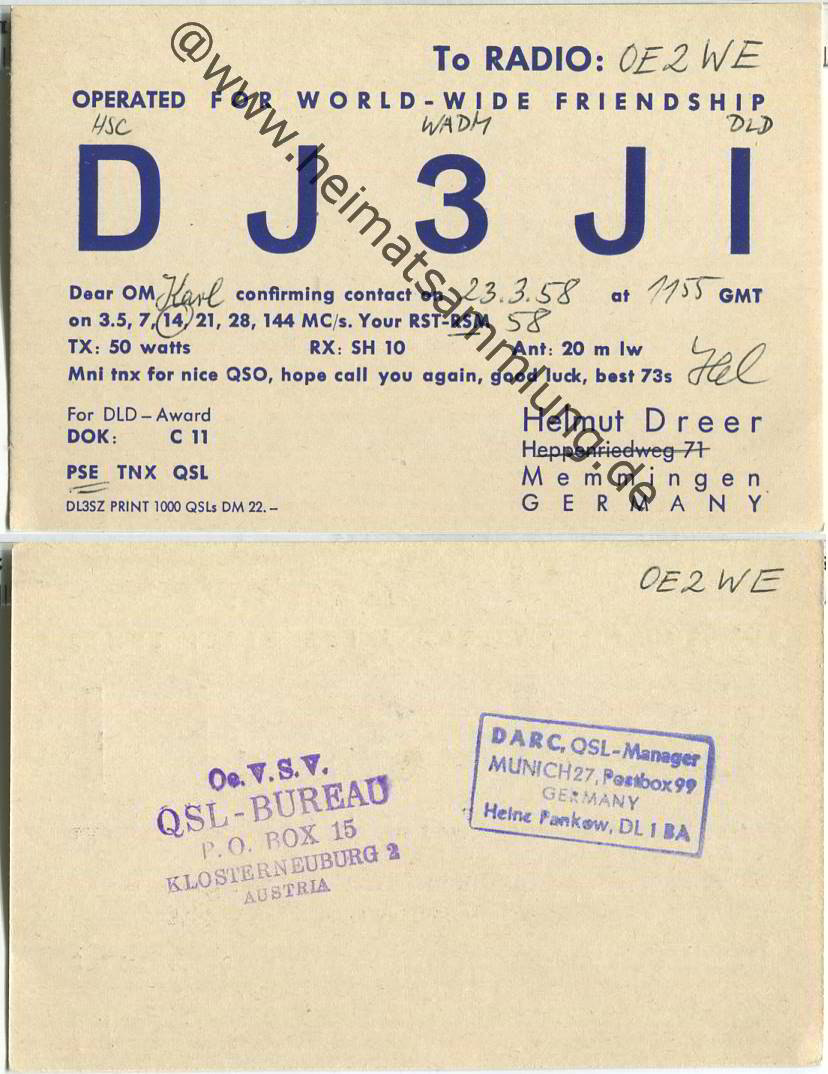 To RADIO: OE2WE
OPERATED FOR WORLD-WIDE FRIENDSHIP
HSC WADM DLD
DJ3JI
Dear OM Karl confirming contact on 23.3.58 at 1155 GMT
on 3.5, 7, 14, 21, 28, 144 MC/s. Your RST-RSM 58
TX: 50 watts RX: SH 10 Ant: 20 m lw
Mni tnx for nice QSO, hope call you again, good luck, best 73s Hel
For DLD – Award
DOK: C 11
PSE TNX QSL
DL3SZ PRINT 1000 QSLs DM 22.–
Helmut Dreer
Heppenriedweg 71
Memmingen
GERMANY
@www.heimatsammlung.de
OE2WE
Oe.V.S.V.
QSL-BUREAU
P.O. BOX 15
KLOSTERNEUBURG 2
AUSTRIA
DARC, QSL-Manager
MUNICH 27, Postbox 99
GERMANY
Heinz Pankow, DL 1 BA